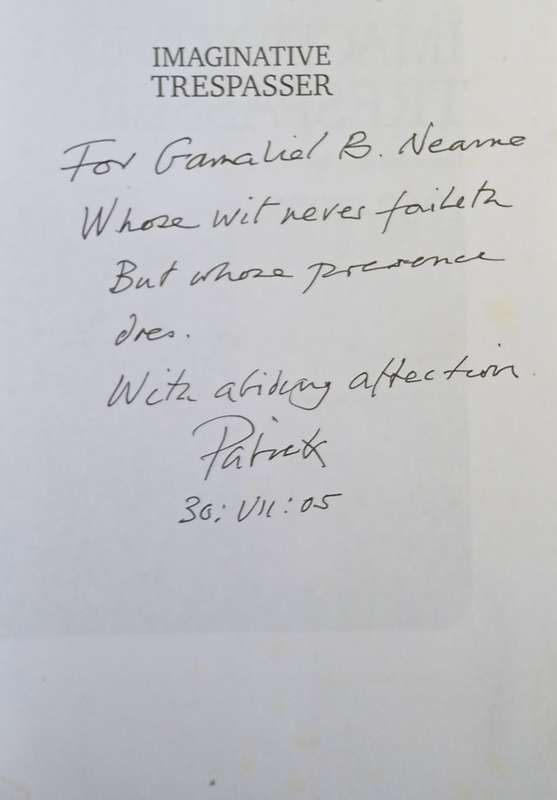 IMAGINATIVE
TRESPASSER
For Gamaliel B. Nearne
Whose wit never faileth
But whose presence
does.
With abiding affection.
Patrick
30: VII: 05